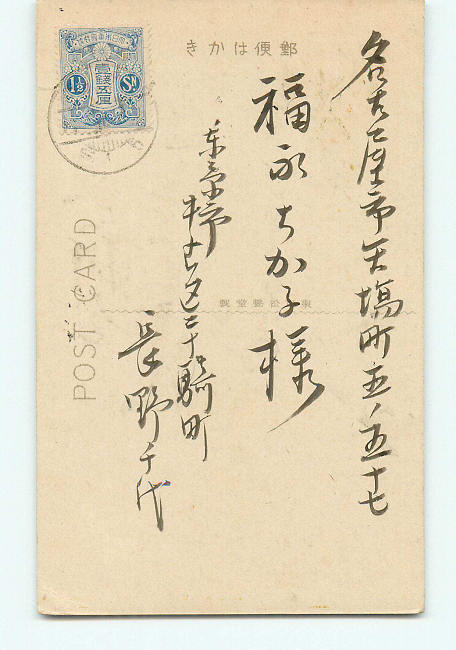 郵便はかき
名古屋市矢塲町五ノ五十七
福永ちか子様
東京市牛込区二十騎町
長野千代
POST CARD
大日本帝國郵便
壹錢五厘
1½ Sn